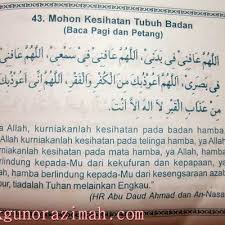 43. Mohon Kesihatan Tubuh Badan
(Baca Pagi dan Petang)
اَللّٰهُمَّ عَافِنِيْ فِيْ بَدَنِيْ، اَللّٰهُمَّ عَافِنِيْ فِيْ سَمْعِيْ، اَللّٰهُمَّ عَافِنِيْ
فِيْ بَصَرِيْ، اَللّٰهُمَّ اِنِّيْ اَعُوْذُبِكَ مِنَ الْكُفْرِ وَالْفَقْرِ، اَللّٰهُمَّ اِنِّيْ اَعُوْذُبِكَ
مِنْ عَذَابِ الْقَبْرِ لَا اِلٰهَ اِلَّا اَنْتَ.
a Allah, kurniakanlah kesihatan pada badan hamba,
Allah kurniakanlah kesihatan pada telinga hamba, ya
kurniakanlah kesihatan pada mata hamba, ya Allah,
lindung kepada-Mu dari kekufuran dan kepapaan, ya
h, hamba berlindung kepada-Mu dari kesengsaraan azab
ur, tiadalah Tuhan melainkan Engkau."
(HR Abu Daud Ahmad dan An-Nasa
kgunorazimah.com